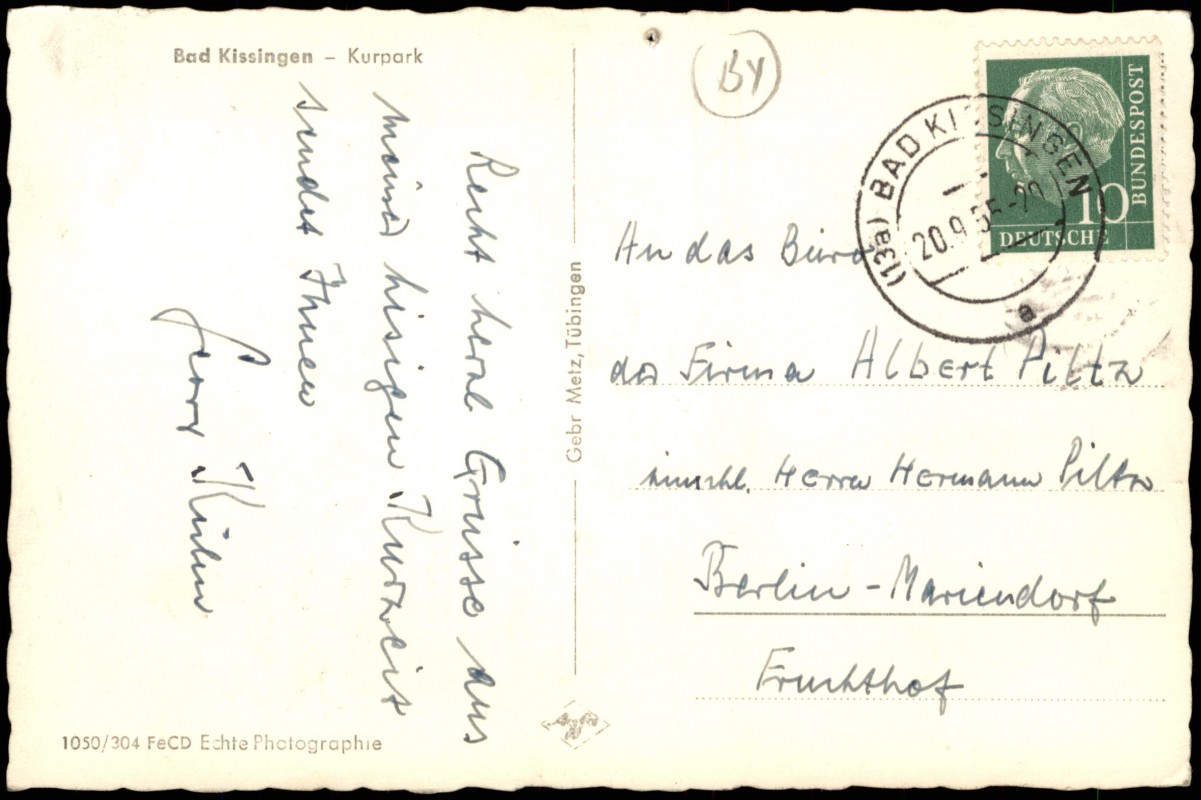 Bad Kissingen – Kurpark
Recht herzl Grüsse aus
meiner hisigen Kurzeit
sendet Ihnen
Kühn
1050/304 FeCD Echte Photographie
Gebr Metz, Tübingen
BY
(13a) BAD KISSINGEN
20.9.55-20
a
BUNDESPOST
10
DEUTSCHE
An das Büro
der Firma Albert Piltz
einschl. Herrn Hermann Piltz
Berlin-Mariendorf
Fruchthof